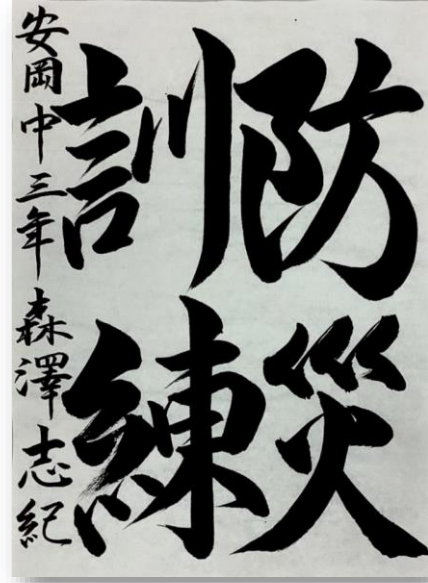 防災
訓練
安岡中三年 森澤志紀